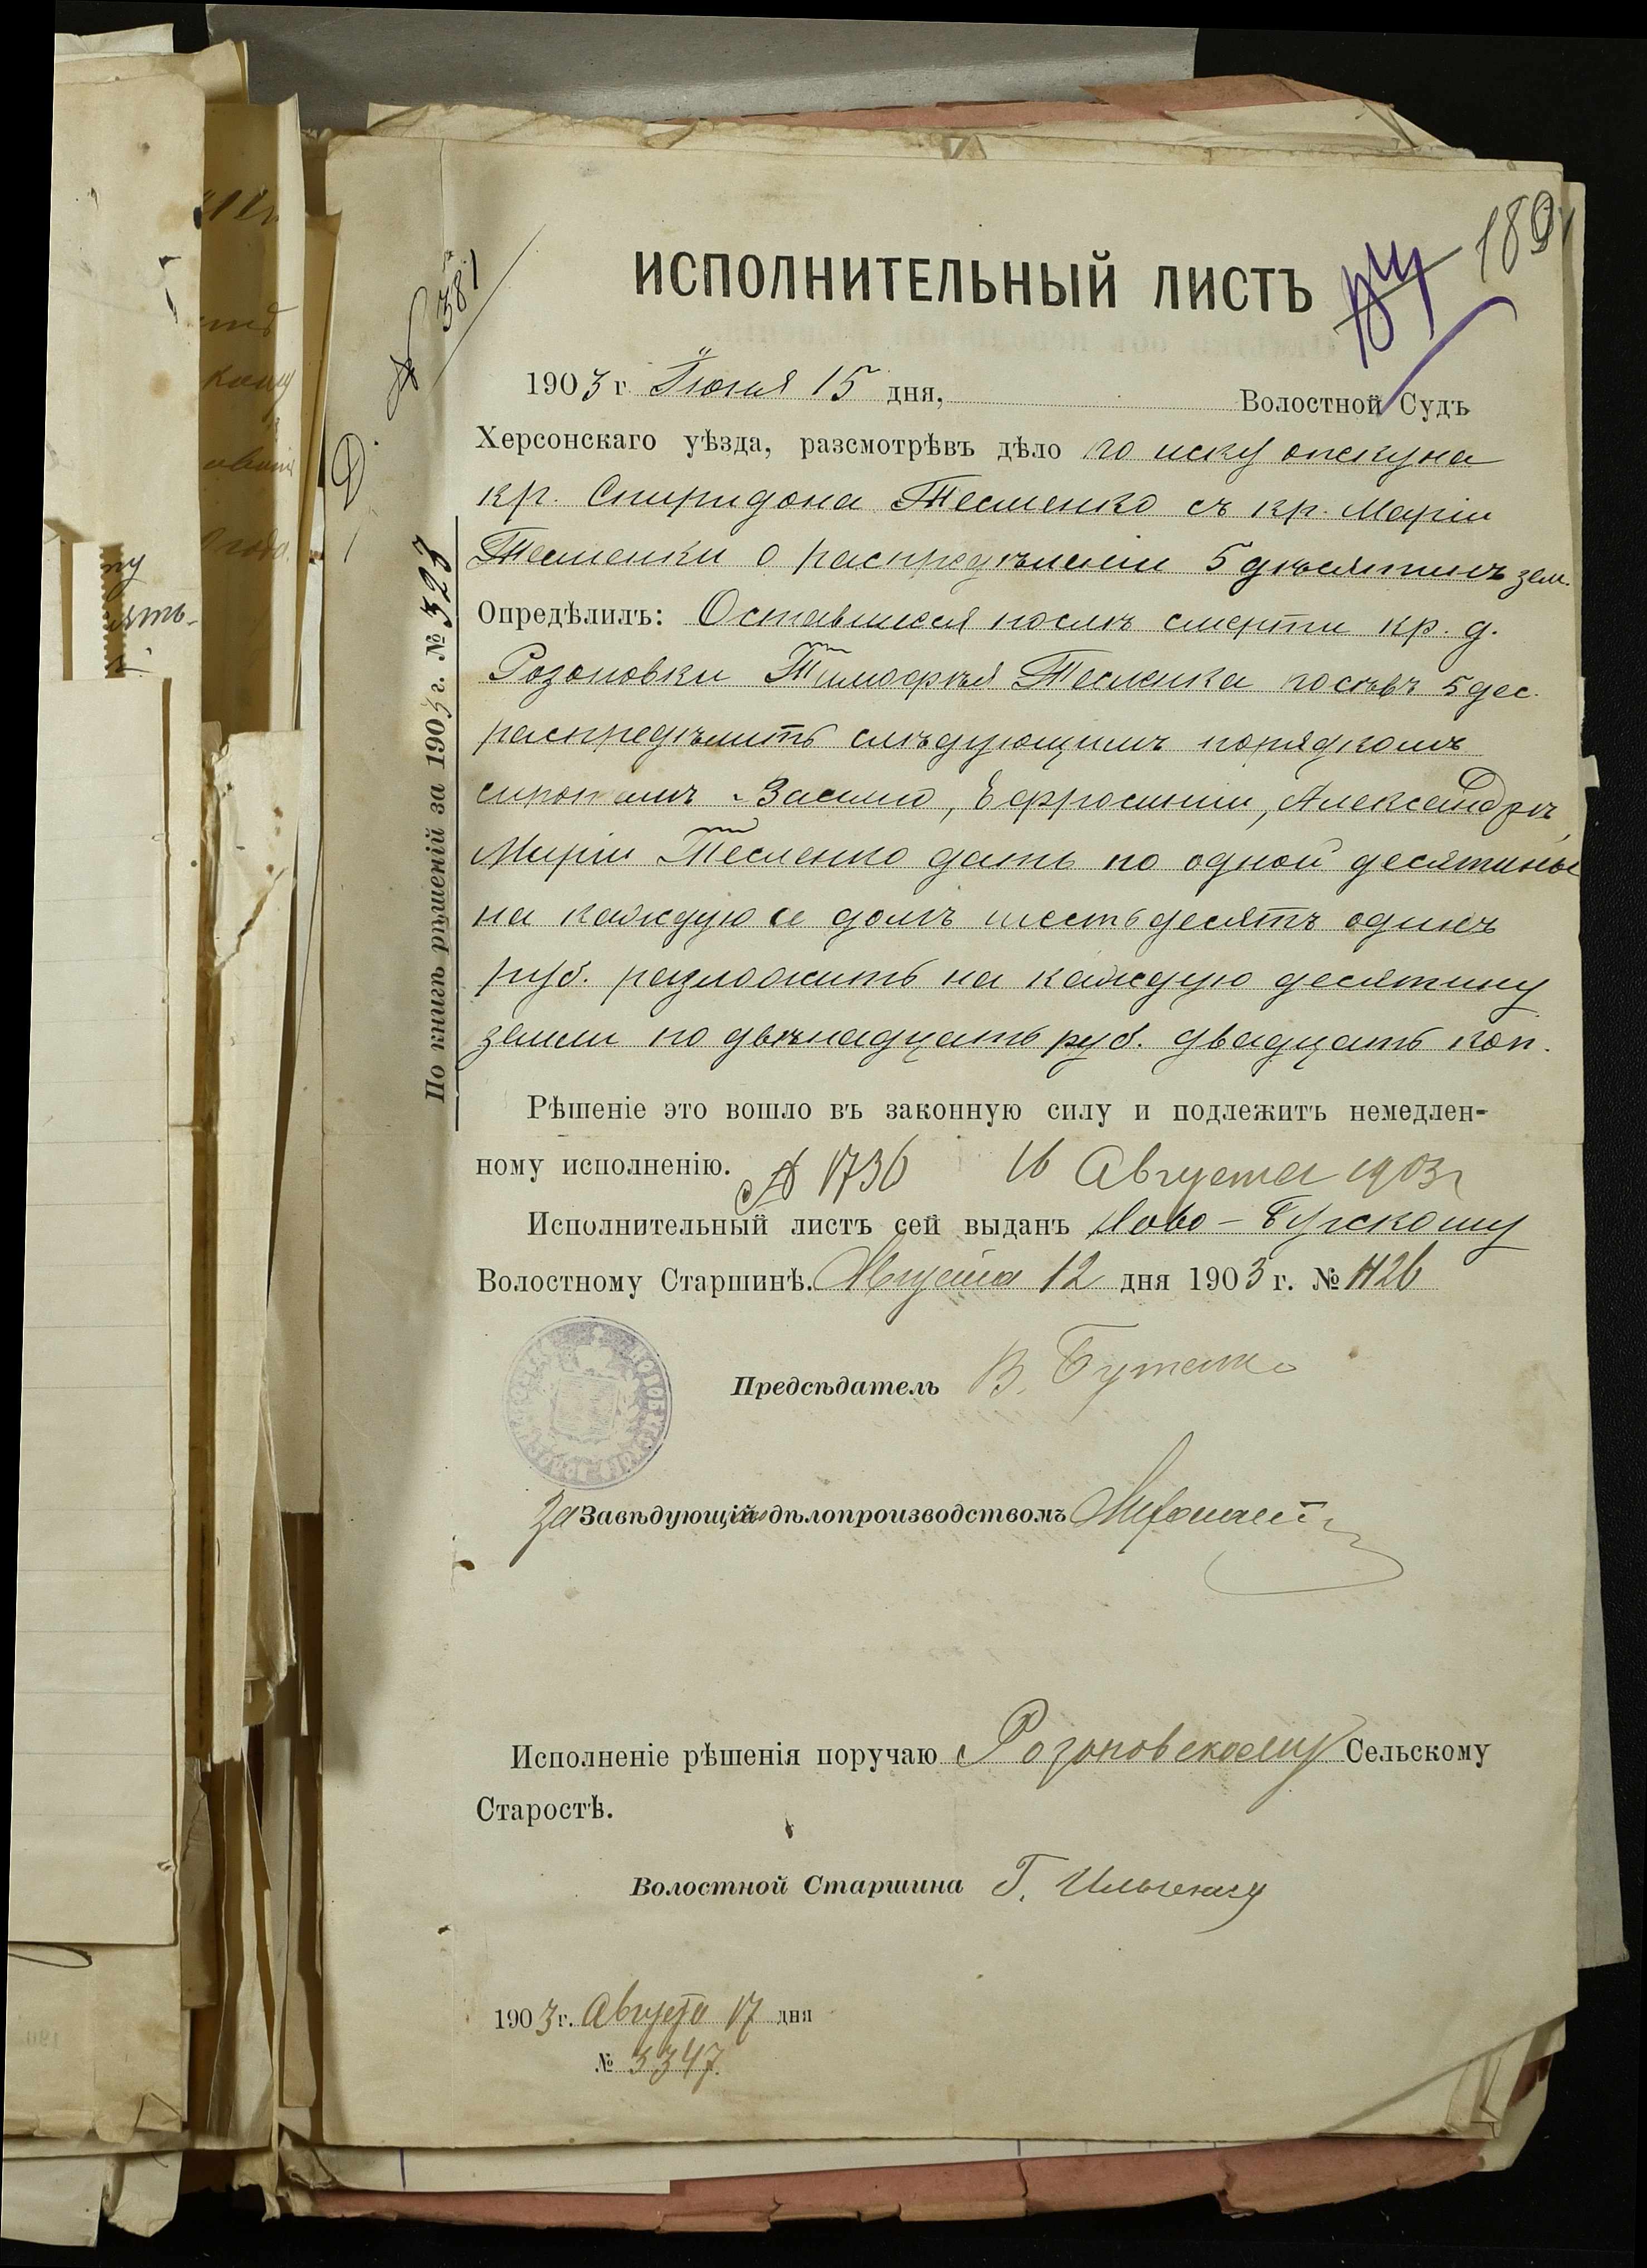 189
ИСПОЛНИТЕЛЬНЫЙ ЛИСТЪ
№ 381
1903 г. Іюня 15 дня, Волостной Судъ
Херсонскаго уѣзда, разсмотрѣвъ дѣло по иску опекуна
кр. Спиридона Тесленко съ кр. Маріи
Тесленки о распредѣленіи 5 дѣсятинъ зем.
Опредѣлилъ: Оставшіеся послѣ смерти кр. д.
Розоновки Тимофѣя Тесленка посѣвъ 5 дес.
распредѣлить слѣдующимъ порядкомъ
сиротамъ Василію, Ефросиніи, Александрѣ,
Маріи Тесленко дать по одной десятины
на каждую а долгъ шестьдесятъ одинъ
руб. разложить на каждую десятину
земли по двѣнадцать руб. двадцать коп.
По книгѣ рѣшеній за 1903 г. № 323
Рѣшеніе это вошло въ законную силу и подлежитъ немедлен-
ному исполненію. № 1736 16 Августа 1903 г
Исполнительный листъ сей выданъ Ново-Бугскому
Волостному Старшинѣ. Августа 12 дня 1903 г. № 1126
Предсѣдатель В. Бутенко
За Завѣдующій дѣлопроизводствомъ
Исполненіе рѣшенія поручаю Розоновскому Сельскому
Старостѣ.
Волостной Старшина Г. Ильченко
1903 г. Августа 17 дня
№ 3347.